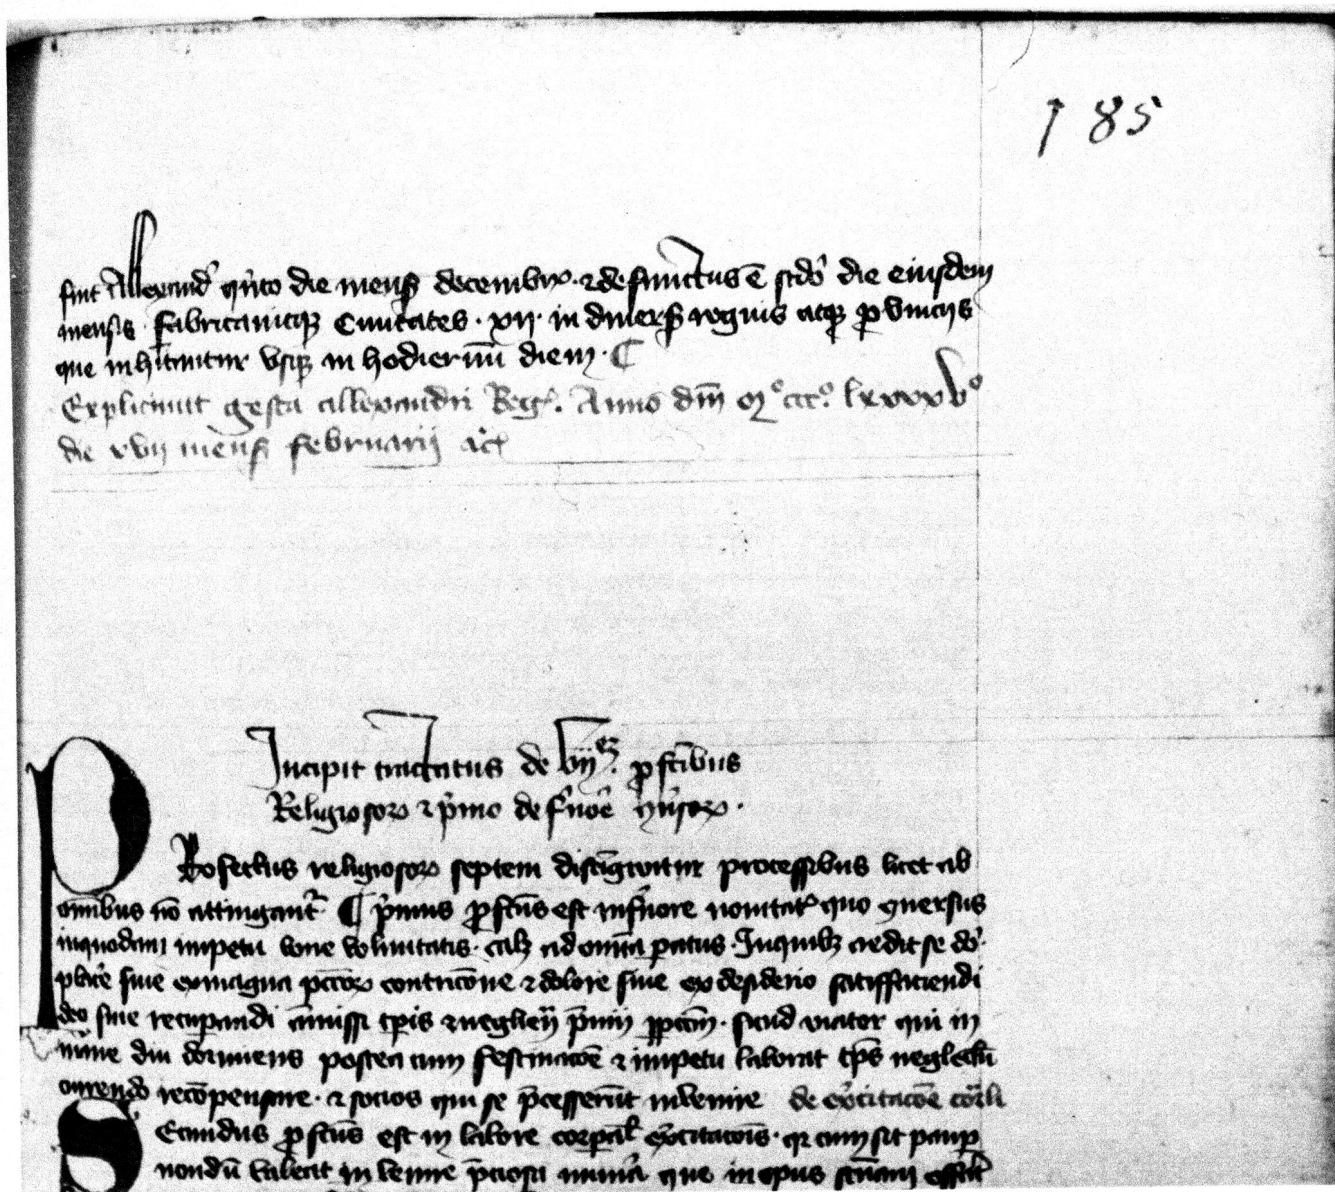 185
fuit Allexand' quīto die mens decembr. & defunctus ē scdo die eiusdem
mensis. fabricauitque Ciuitates. xii. in diuers regnis atque prouinciis
que inhītantur vsque in hodiernū diem.
Expliciunt gesta allexandri Reg. Anno dm̄ mo ccco lxxxvo
die xvii mens februarij
Incipit tractatus de vij pfctibus
Religiosor & pmo de
Rofectus religiosor septem distīguitur processibus licet ab
omibus nō attingant. pmus pfctus est in feruore nouitat quo conuersus
in quodam impetu bone voluntatis. ad omīa paratus. In quibus credit se do.
placēe siue ex magna pctor contricōne & dolore siue ex desiderio satisffaciendi
deo siue recupandi amissi tpis & p̄mij. sicud viator qui in
mane diu dormiens postea cum festinacōe & impetu laborat tps neglectū
currendo recōpensare. & socios qui se p̄cesserūt inuenire de exercitacōe
Ecundus pfctus est in labore corpal exercitacōis. cum sit paup
nondū valeat in venire p̄ciosa que in opus